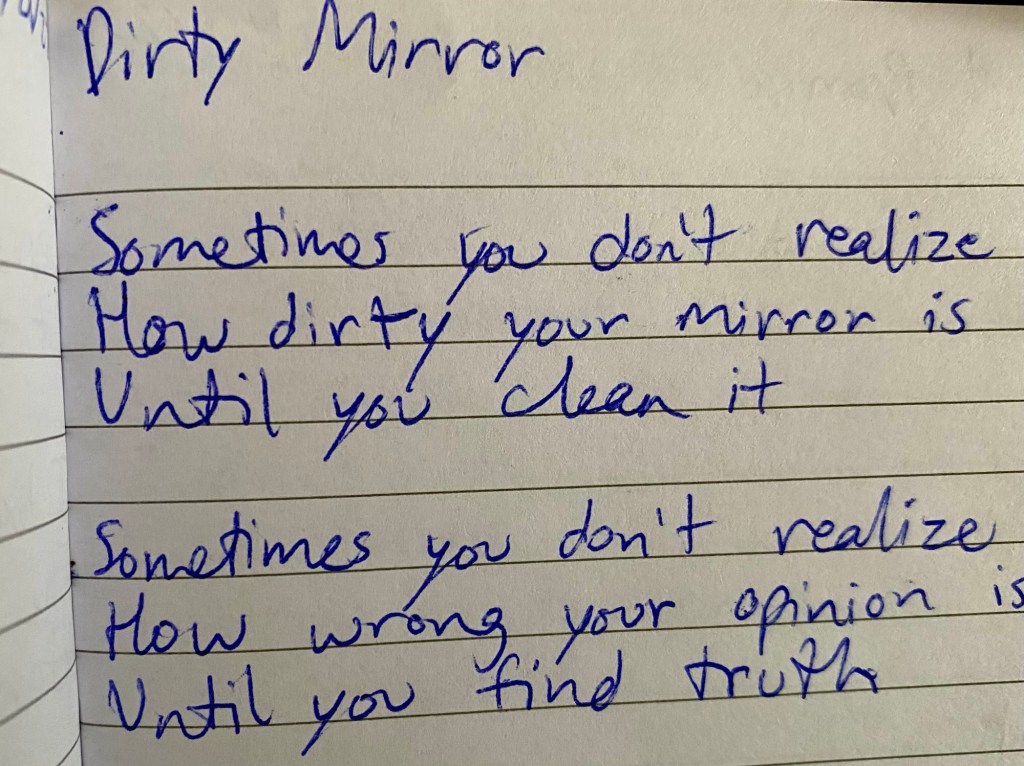 Dirty Mirror
Sometimes you don't realize
How dirty your mirror is
Until you clean it
Sometimes you don't realize
How wrong your opinion is
Until you find truth